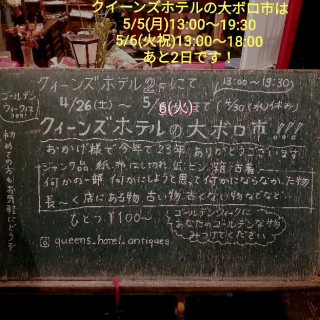 クイーンズホテルの大ボロ市は
5/5(月)13:00〜19:30
5/6(火祝)13:00〜18:00
あと2日です!
クィーンズホテル2Fにて
13:00〜19:30
4/26(土)〜5/6(火)まで(4/30(水)休み)
ゴールデン
ウィークは
クィーンズホテルの大ボロ市!!!
おかげ様で今年で23年ありがとうございます
初めての方もお気軽にどうぞ
ジャンク品 紙 布はしきれ 缶 ビン 箱 古着
何かの一部 何かにしようと思って何かにならなかった物
長〜く店にある物、古い物、古くない物などなど…
ひとつ¥100〜
ゴールデンウィークに
あなたのゴールデンな物
みつけてください
queens_hotel_antiques